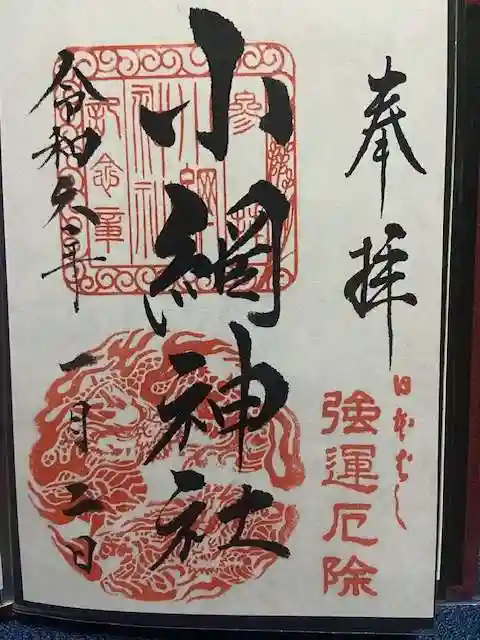 奉拝
日本ばし
強運厄除
小網神社
參拝
小網
神社
記念章
令和六年
一月二日